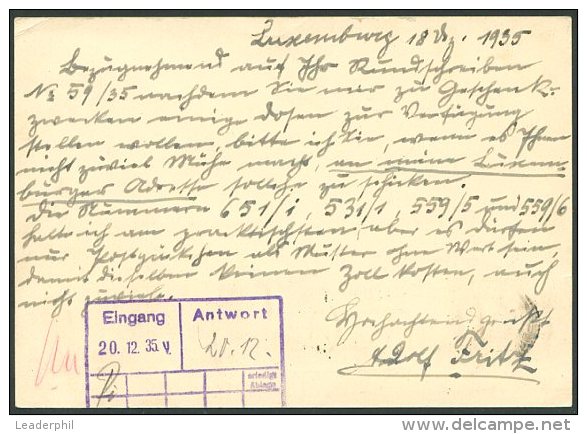 Luxemburg 18 Dz. 1935
Bezugnehmend auf Ihr Rundschreiben
No 59/35 nachdem Sie mir zu Geschenk-
zwecken einige Dosen zur Verfügung
stellen wollen, bitte ich Sie, wenn es Ihnen
nicht zuviel Mühe macht, an meine Luxem-
burger Adresse solche zu schicken.
Die Nummern 651/1, 531/1, 559/5 und 559/6
halte ich am praktischsten, aber es dürfen
nur Postpäckchen als Muster ohne Wert sein,
damit dieselben keinen Zoll kosten, auch
nicht zuviele.
Hochachtend grüßt
Adolf Fritz
Eingang
20. 12. 35. V.
Antwort
20. 12.
erledigt
Ablage
Leaderphil
delcampe.net